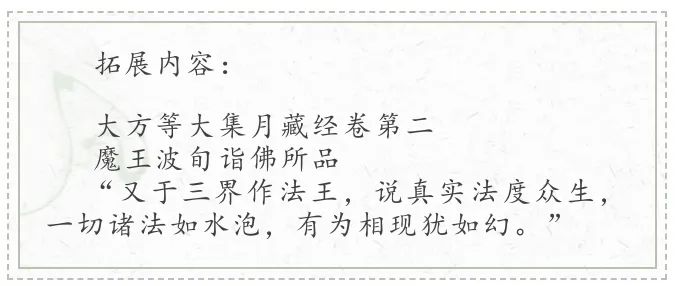 拓展内容：
大方等大集月藏经卷第二
魔王波旬诣佛所品
“又于三界作法王，说真实法度众生，
一切诸法如水泡，有为相现犹如幻。”